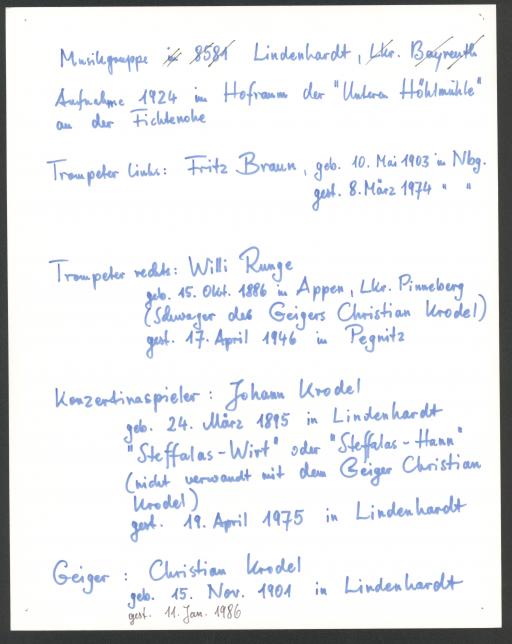 Musikgruppe in 8581 Lindenhardt, Lkr. Bayreuth
Aufnahme 1924 im Hofraum der "Unteren Höhlmühle"
an der Fichtenohe
Trompeter links: Fritz Braun, geb. 10. Mai 1903 in Nbg.
gest. 8. März 1974 " "
Trompeter rechts: Willi Runge
geb. 15. Okt. 1886 in Appen, Lkr. Pinneberg
(Schwager des Geigers Christian Krodel)
gest. 17. April 1946 in Pegnitz
Konzertinaspieler: Johann Krodel
geb. 24. März 1895 in Lindenhardt
"Steffalas-Wirt" oder "Steffalas-Hann"
(nicht verwandt mit dem Geiger Christian
Krodel)
gest. 19. April 1975 in Lindenhardt
Geiger: Christian Krodel
geb. 15. Nov. 1901 in Lindenhardt
gest. 11. Jan. 1986